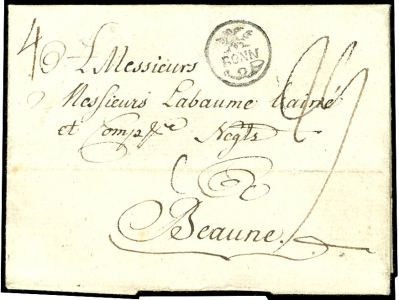 4
A Messieurs
BONN
Messieurs Labaume L'ainé
et Compe Negts
à
Beaune.